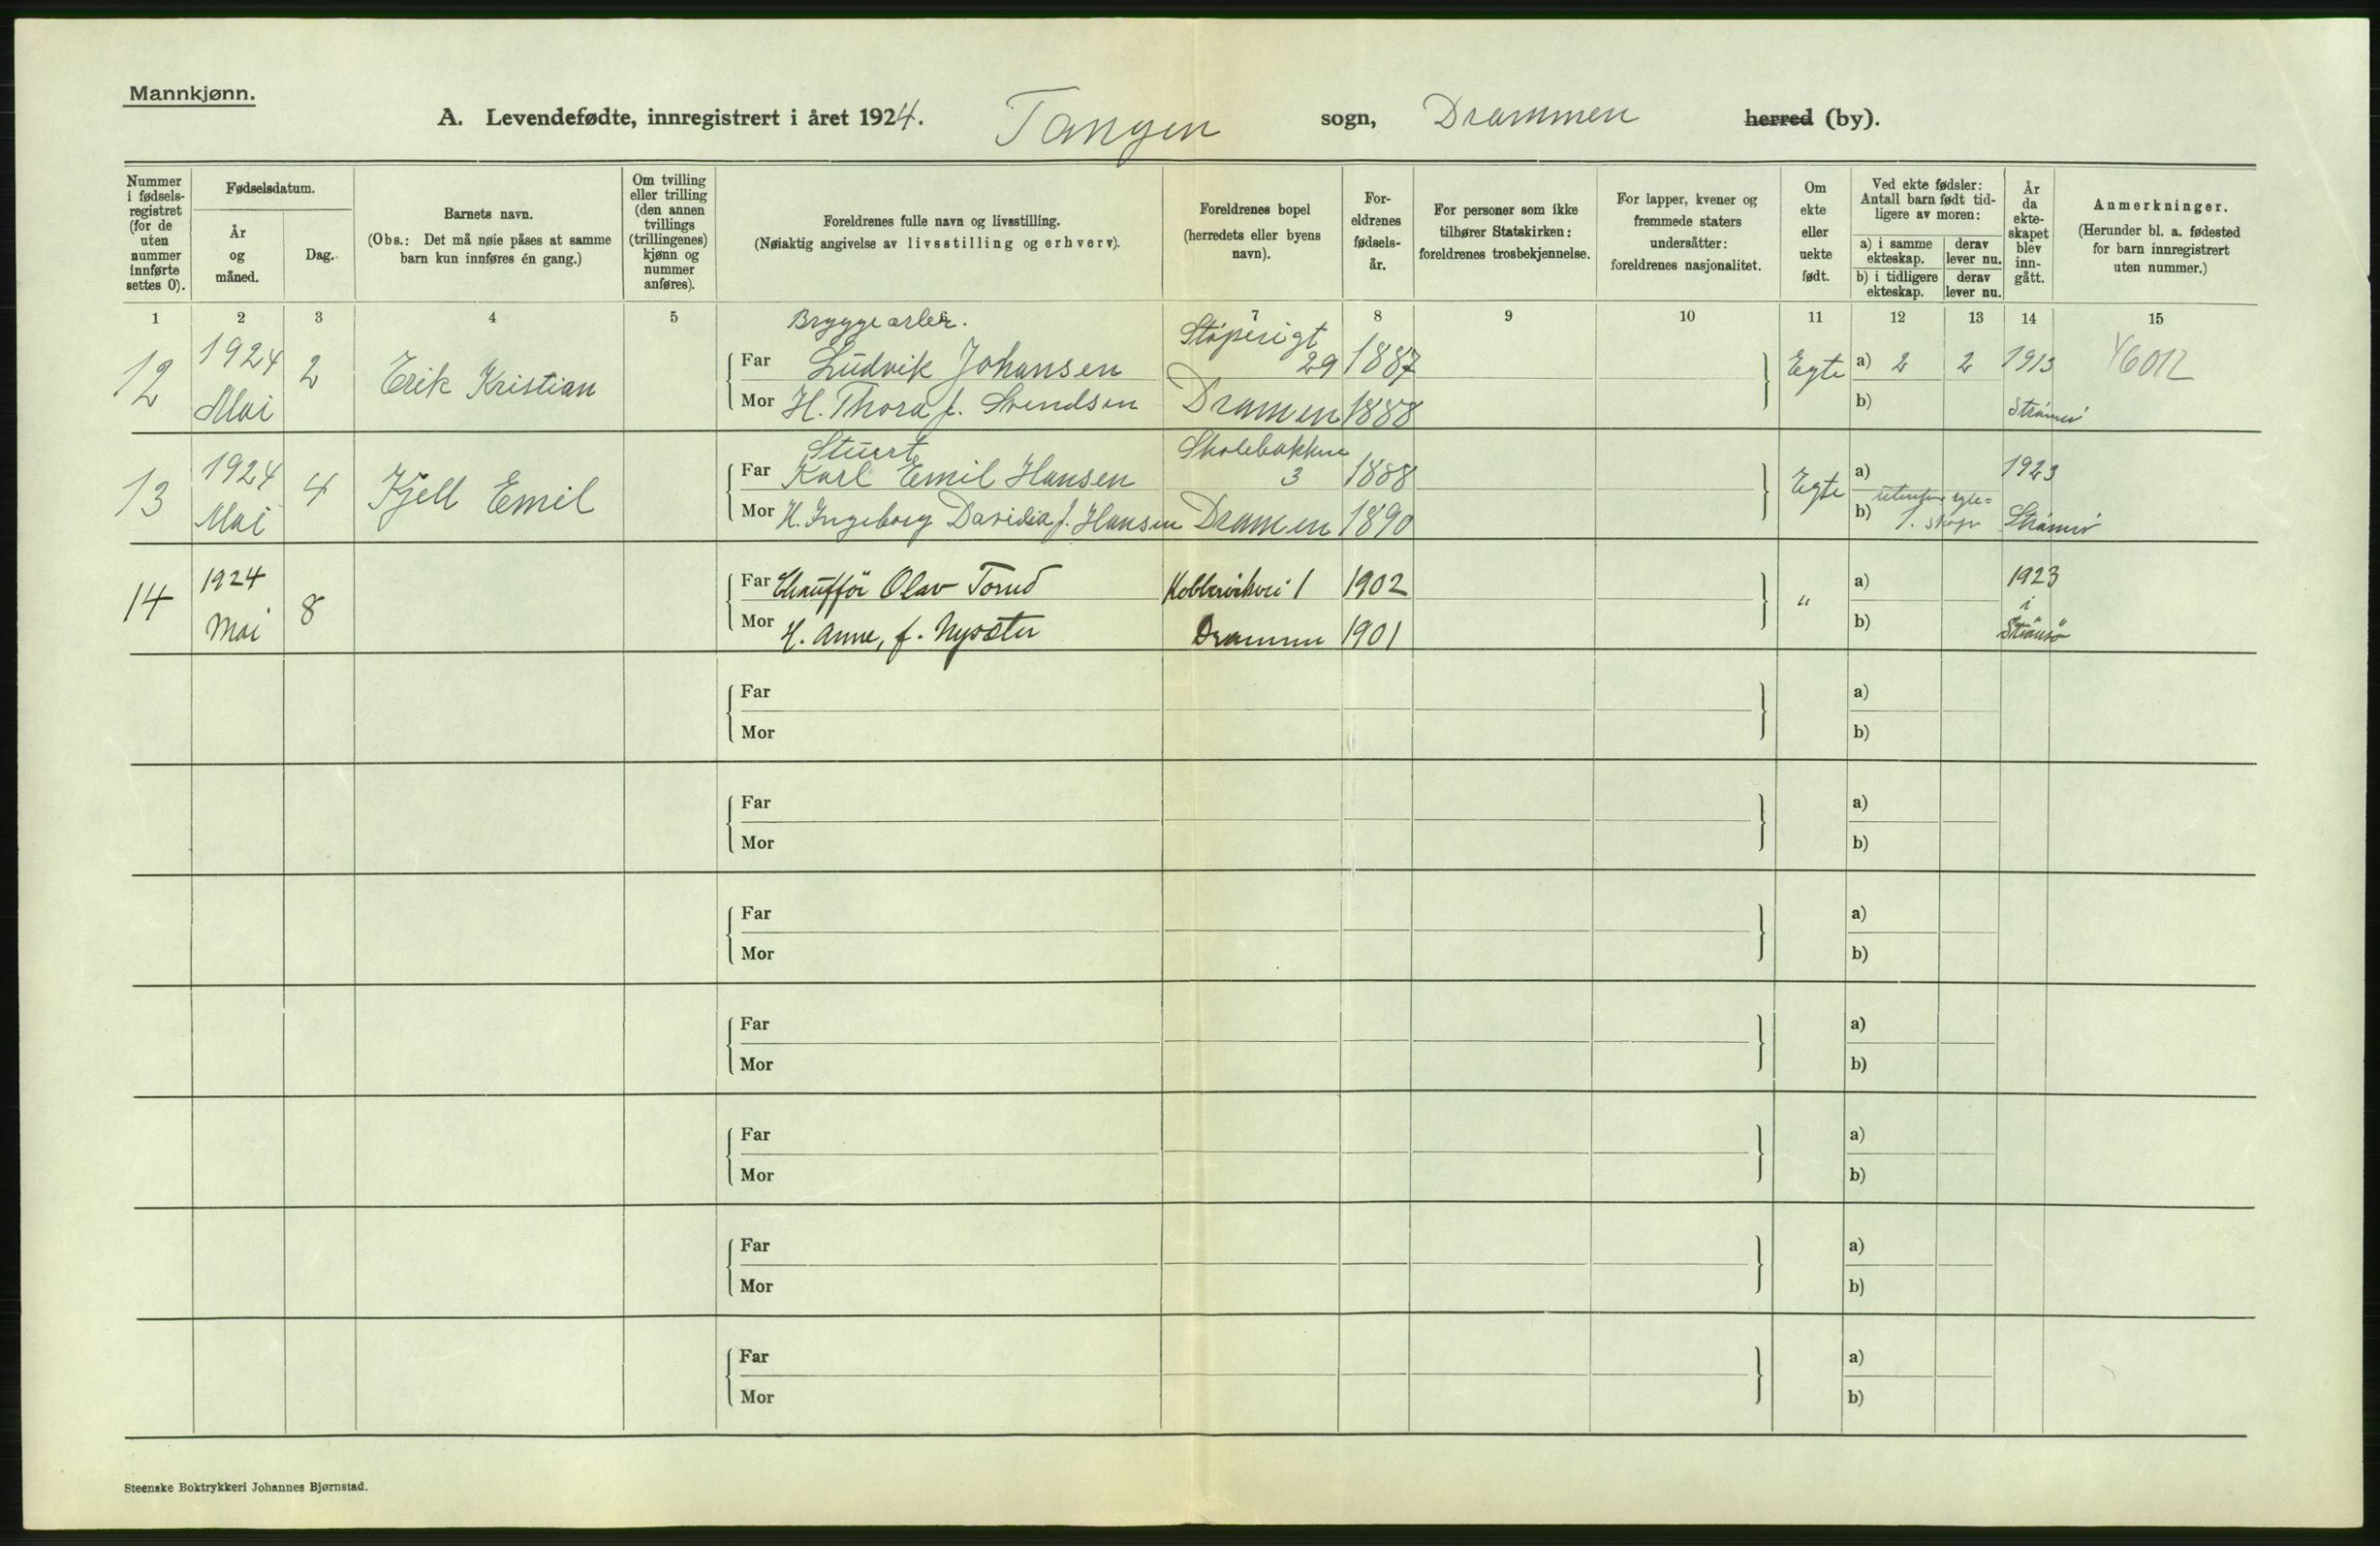 Mannkjønn.
A. Levendefødte, innregistrert i året 1924. Tangen sogn, Drammen herred (by).
Nummer i fødsels-registret (for de uten nummer innførte settes 0).
Fødselsdatum.
År og måned.
Dag.
Barnets navn.
(Obs.: Det må nøie påses at samme barn kun innføres én gang.)
Om tvilling eller trilling (den annen tvillings (trillingenes) kjønn og nummer anføres).
Foreldrenes fulle navn og livsstilling.
(Nøiaktig angivelse av livsstilling og erhverv).
Foreldrenes bopel (herredets eller byens navn).
For-eldrenes fødsels-år.
For personer som ikke tilhører Statskirken: foreldrenes trosbekjennelse.
For lapper, kvener og fremmede staters undersåtter: foreldrenes nasjonalitet.
Om ekte eller uekte født.
Ved ekte fødsler: Antall barn født tid-ligere av moren:
a) i samme ekteskap.
derav lever nu.
b) i tidligere ekteskap.
derav lever nu.
År da ekte-skapet blev inn-gått.
Anmerkninger.
(Herunder bl. a. fødested for barn innregistrert uten nummer.)
1 2 3 4 5 7 8 9 10 11 12 13 14 15
Bryggearb.
12 1924 Mai 2 Erik Kristian
Far Ludvik Johansen 29 1887
Mor H. Thora f. Svendsen Dramen 1888
Egte a) 2 2 1913
b) Strømsø
Stuert Skolebakken
13 1924 Mai 4 Kjell Emil
Far Karl Emil Hansen 3 1888
Mor H. Ingeborg Davidia f. Hansen Dramen 1890
Egte a) 1923
b) 1. Strømsø
14 1924 Mai 8
Far Chauffør Olav Torud 1 1902
Mor H. Anne, f. Nysæter Drammen 1901
" a) 1923
b) i Strømsø
Far a)
Mor b)
Far a)
Mor b)
Far a)
Mor b)
Far a)
Mor b)
Far a)
Mor b)
Far a)
Mor b)
Far a)
Mor b)
Steenske Boktrykkeri Johannes Bjørnstad.